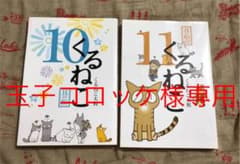 10
くるねこ
11
くるねこ
玉子コロッケ様専用